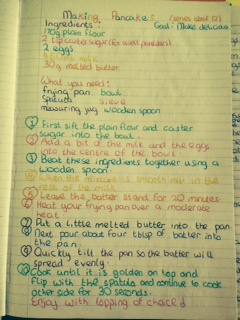 Making Pancakes (serves about 12)
Ingredients: Goal: Make delicious
110g plain flour
2 tsp caster sugar
2 eggs
milk
30g melted butter
What you need:
frying pan bowl
Spatula sieve
measuring jug wooden spoon
① First sift the plain flour and caster
sugar into the bowl.
② Add a bit of the milk and the eggs
into the centre of the bowl.
③ Beat these ingredients together using a
wooden spoon.
④ When the mixture is smooth mix in the
rest of the milk.
⑤ Leave the batter stand for 20 minutes.
⑥ Heat your frying pan over a moderate
heat.
⑦ Put a little melted butter into the pan
⑧ Next pour about four tblsp of batter into
the pan.
⑨ Quickly tilt the pan so the batter will
spread evenly.
⑩ Cook until it is golden on top and
flip with the spatula and continue to cook
other side for 30 seconds.
Enjoy with topping of choice!